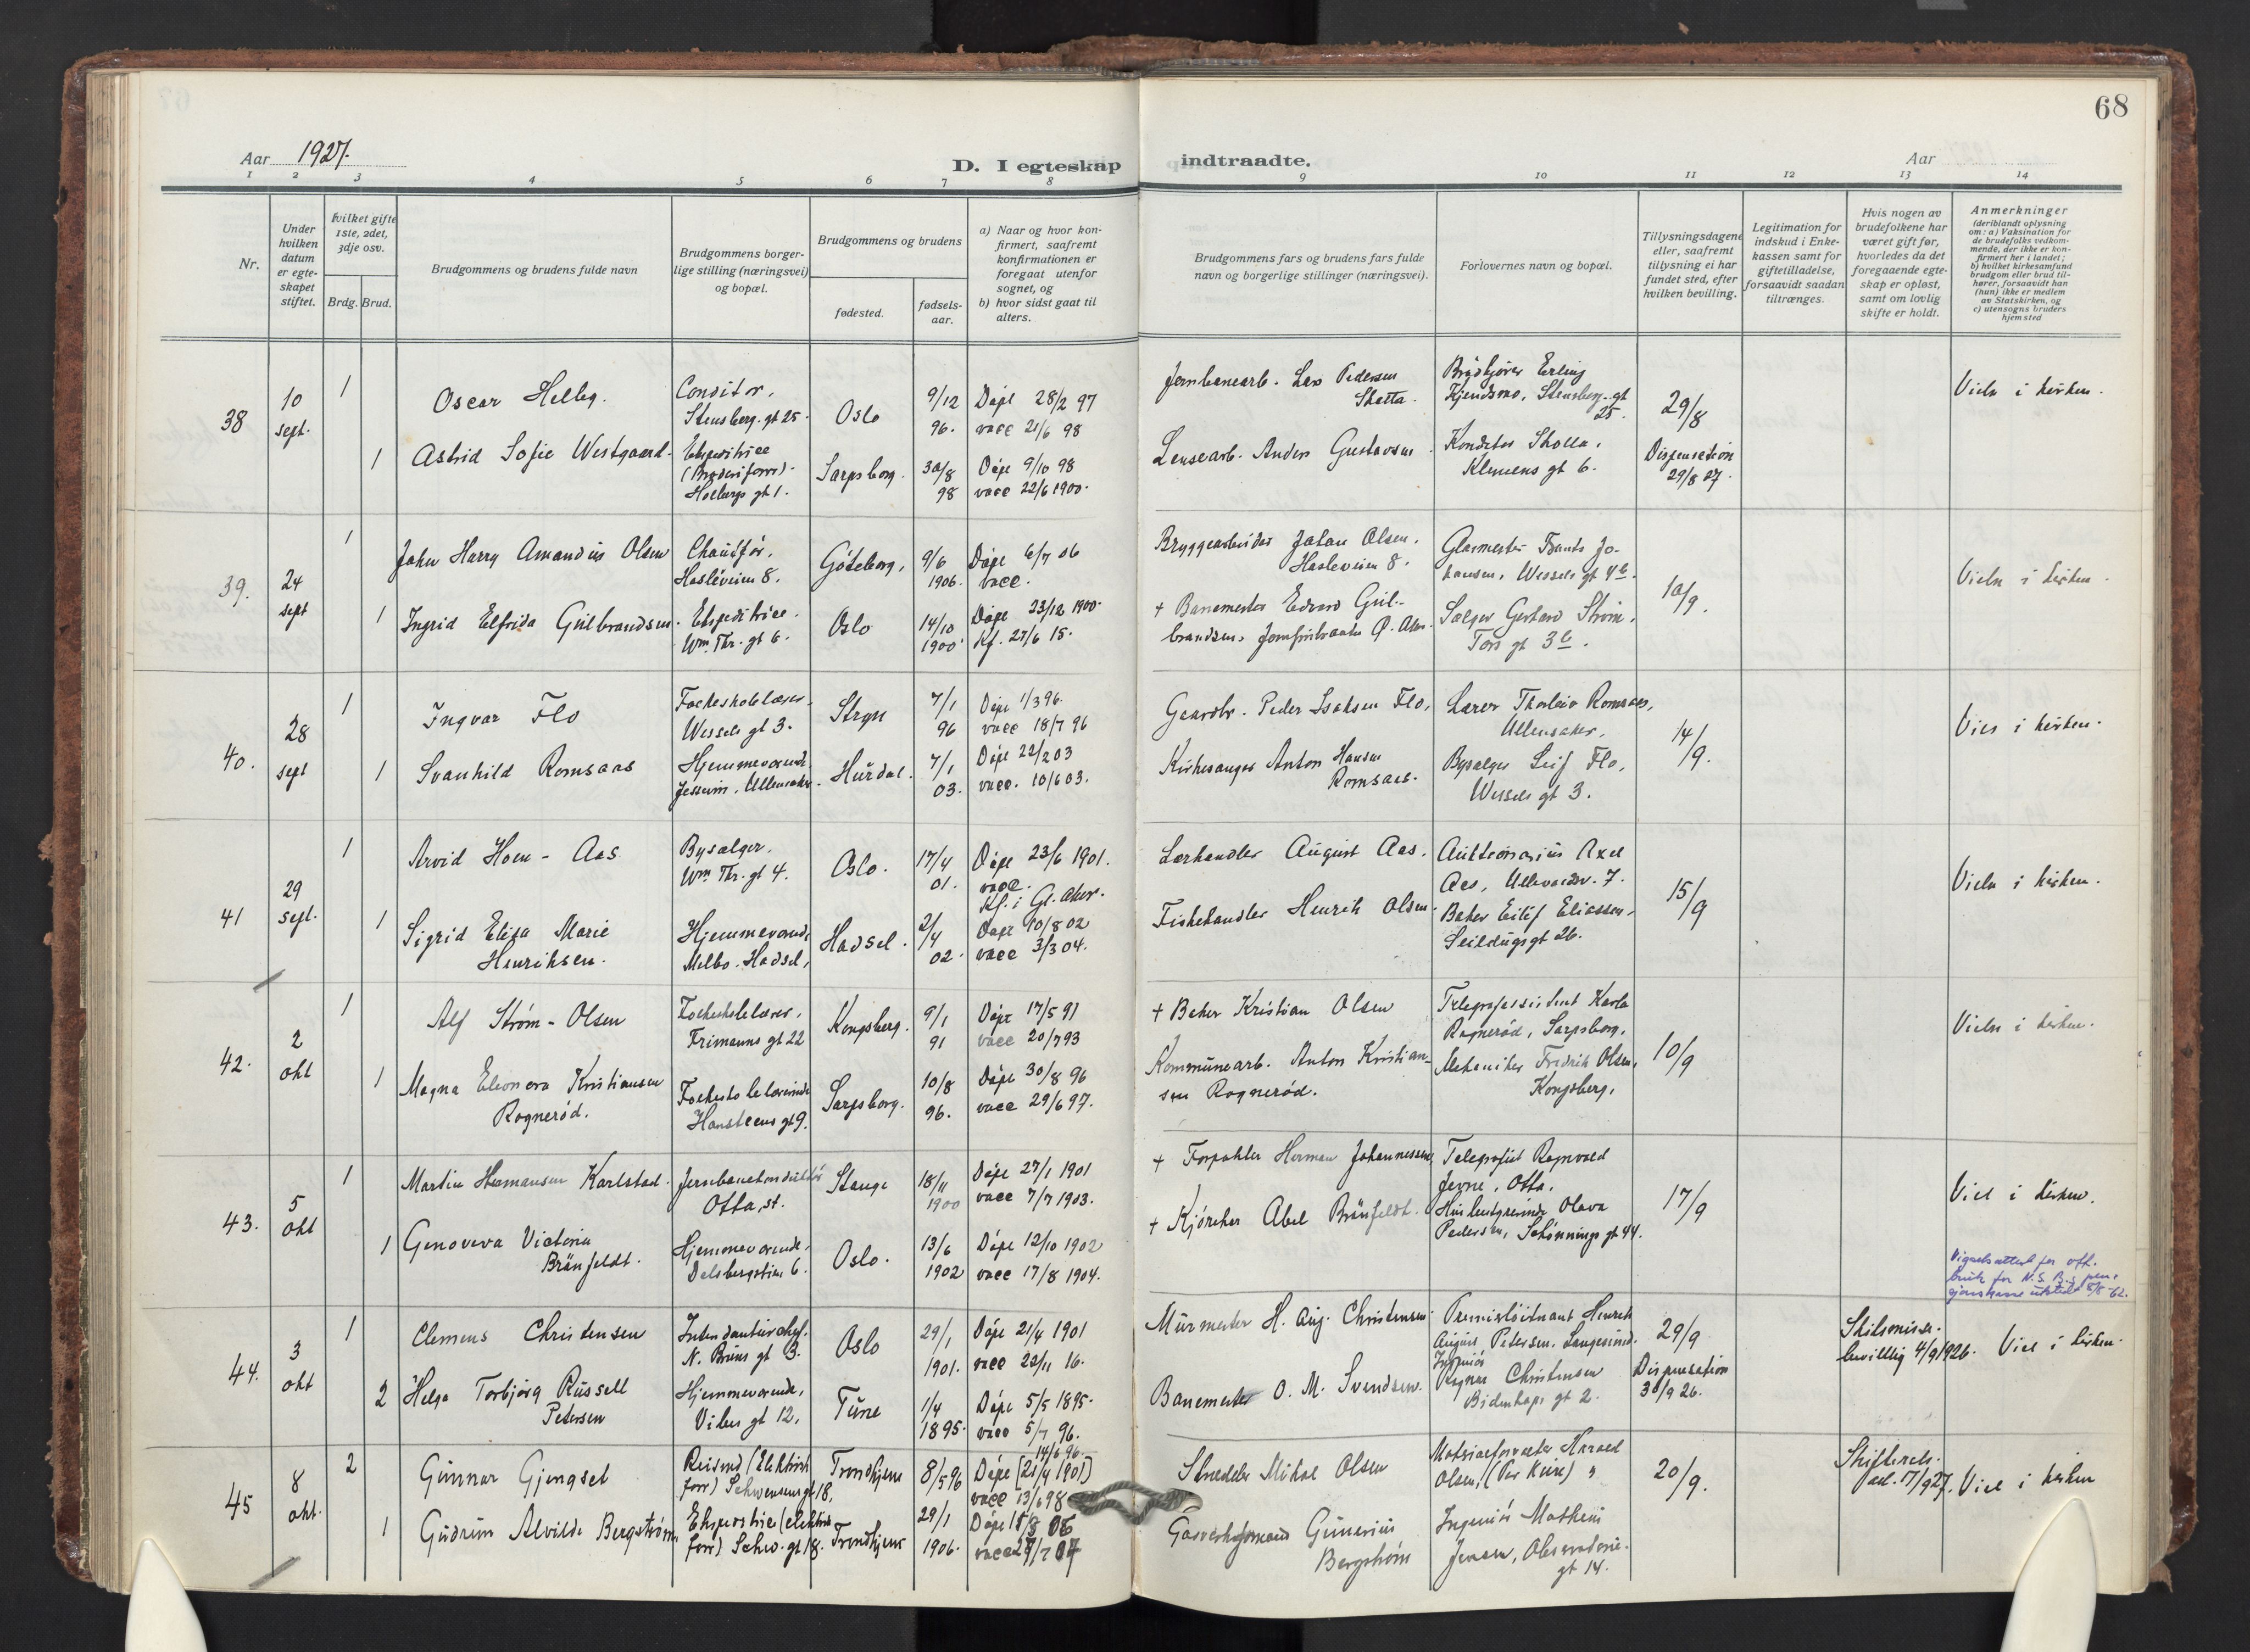 68
Aar 1927.
D. I egteskap indtraadte.
Aar
1 2 3 4 5 6 7 8 9 10 11 12 13 14
Nr.
Under
hvilken
datum
er egte-
skapet
stiftet.
hvilket gifte
1ste, 2det,
3dje osv.
Brdg. Brud.
Brudgommens og brudens fulde navn
Brudgommens borger-
lige stilling (næringsvei)
og bopæl.
Brudgommens og brudens
fødested.
fødsels-
aar.
a) Naar og hvor kon-
firmert, saafremt
konfirmationen er
foregaat utenfor
sognet, og
b) hvor sidst gaat til
alters.
Brudgommens fars og brudens fars fulde
navn og borgerlige stillinger (næringsvei).
Forlovernes navn og bopæl.
Tillysningsdagene
eller, saafremt
tillysning ei har
fundet sted, efter
hvilken bevilling.
Legitimation for
indskud i Enke-
kassen samt for
giftetilladelse,
forsaavidt saadan
tiltrænges.
Hvis nogen av
brudefolkene har
været gift før,
hvorledes da det
foregaaende egte-
skap er opløst,
samt om lovlig
skifte er holdt.
Anmerkninger
(deriblandt oplysning
om: a) Vaksination for
de brudefolks vedkom-
mende, der ikke er kon-
firmert her i landet;
b) hvilket kirkesamfund
brudgom eller brud til-
hører, forsaavidt han
(hun) ikke er medlem
av Statskirken, og
c) utensogns bruders
hjemsted
38
10
sept.
1
Oscar Helleg.
Conditor,
Stensberg. gt 25.
Oslo
9/12
96.
Døpt 28/2 97
vacc 21/6 98
Jernbanearb. Lars Pedersen
Skotta.
Erling
Kjendsmo, Stensberg. gt
25.
29/8
Viels i kirken.
1
Astrid Sofie Westgaard.
Ekspeditrice
(Broderiforr.)
Holbergs gt 1.
Sarpsborg.
30/8
98
Døpt 9/10 98
vacc 22/6 1900.
Lensearb. Anders Gustavsen
Konditor Skolla,
Klemens gt 6.
Dispensation
29/8 27.
39.
24
sept
1
John Harry Amandus Olsen
Chauffør,
Hasleveien 8.
Göteborg,
9/6
1906.
Døpt 6/7 06
vacc.
Bryggearbeider Johan Olsen.
Hasleveien 8.
Glasmester Frants Jo-
hansen, Wessels gt 4 b.
10/9.
Viels i kirken.
1
Ingrid Elfrida Gulbrandsen.
Ekspeditrice.
Wm. Thr. gt 6.
Oslo
14/10
1900.
Døpt 23/12 1900.
Kf. 27/6 15.
+ Banemester Edvard Gul-
brandsen,
Sælger Gerhard Strøm.
Tors gt 3 b.
40.
28
sept
1
Ingvar Flo
Folkeskolelærer,
Wessels gt 3.
Stryn
7/1
96
Døpt 1/3 96.
vacc 18/7 96
Gaardbr. Peder Isaksen Flo,
Lærer Thorleiv Romsaas,
Ullensaker.
14/9.
Viels i kirken.
1
Svanhild Romsaas
Hjemmeværende,
Jessheim, Ullensaker.
Hurdal.
7/1
03.
Døpt 22/2 03
vacc. 10/6 03.
Kirkesanger Anton Hansen
Romsaas.
Bysælger Leif Flo,
Wessels gt 3.
41
29
sept.
1
Arvid Hoen - Aas
Bysælger.
Wm Thr. gt 4.
Oslo.
17/4
01.
Døpt 23/6 1901.
vacc.
Kf. i Gl. Aker.
Lærhandler August Aas.
Auktionarius Axel
Aas, Ullevaalsv. 7.
15/9
Viels i kirken.
1
Sigrid Elisa Marie
Henriksen.
Hjemmeværende
Melbo. Hadsel,
Hadsel.
2/4
02.
Døpt 10/8 02
vacc 3/3 04.
Fiskehandler Henrik Olsen.
Baker Eilif Eliassen,
Seildugsgt 26.
42.
2
okt
1
Alf Strøm - Olsen
Folkeskolelærer,
Frimanns gt 22
Kongsberg.
9/1
91
Døpt 17/5 91
vacc 20/7 93
+ Baker Kristian Olsen
Telegrafassistent Karla
Rognerød, Sarpsborg.
10/9
Viels i kirken.
1
Magna Eleonora Kristiansen
Rognerød.
Folkeskolelærerinde
Hansteens gt 9.
Sarpsborg.
10/8
96.
Døpt 30/8 96
vacc 29/6 97.
Kommunearb. Anton Kristian-
sen Rognerød.
Mekaniker Fredrik Olsen,
Kongsberg.
43.
5
okt
1
Martin Hermansen Karlstad.
Jernbanekonduktør
Otta st.
Stange
18/11
1900
Døpt 27/1 1901
vacc 7/7 1903.
+ Forpakter Herman Johannessen,
Telegrafist Ragnvald
Jevne, Otta.
17/9
Viet i kirken.
1
Genoveva Victoria
Bränfeldt.
Hjemmeværende,
Dalsbergstien 6.
Oslo.
13/6
1902
Døpt 12/10 1902
vacc 17/8 1904.
+ Kjørcher Abel Bränfeldt.
Olava
Pedersen, Schønnings gt 44.
Vigselsattest for off.
bruk for N.S.B.s pen-
sjonskasse utstedt 8/5 62.
44.
3
okt
1
Clemens Christensen
Intendanturchef.
N. Bruns gt 3.
Oslo
29/1
1901.
Døpt 21/4 1901
vacc 22/11 16.
Murmester H. Aug. Christensen
Premierløitnant Henrik
August Petersen, Langesund.
29/9
Skilsmisse-
bevilling 4/9 1926.
Viet i kirken.
2
Helga Torbjørg Russell
Petersen
Hjemmeværende,
Vibes gt 12,
Tune
1/4
1895.
Døpt 5/5 1895.
vacc 5/7 96.
Banemester O. M. Svendsen.
Ingeniør
Ragnar Christensen
Bidenkaps gt 2.
Dispensation
30/9 26.
45
8
okt.
2
Gunnar Gjengset
Reisend (Elektrisk
forr) Schwensens gt 18,
Trondhjem
8/5 96
14/6 96.
Døpt [21/4 1901]
vacc 13/6 98
Mikal Olsen
Materialforvalter Harald
Olsen,
20/9.
Skifteretts.
17/9 27.
Viet i kirken
1
Gudrun Alvilde Bergstrøm
Ekspeditrice (elektrisk
forr) Schw. gt 18.
Trondhjem
29/1
1906.
Døpt 15/3 06
vacc 27/7 07
Gunerius
Bergstrøm
Ingeniør Mathias
Jensen, Observatorie-
gt 14.